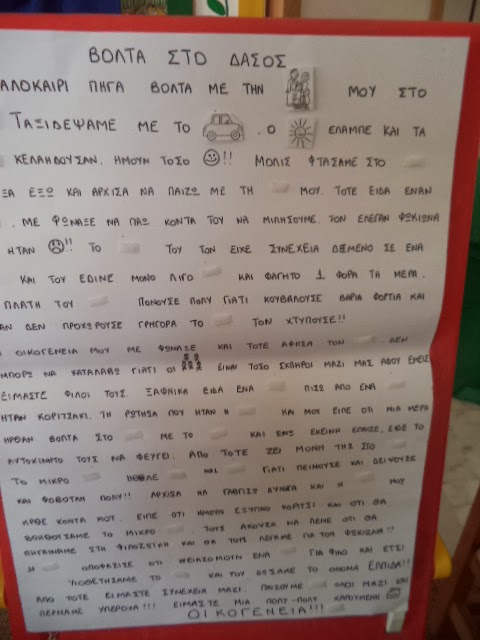 ΒΟΛΤΑ ΣΤΟ ΔΑΣΟΣ
ΑΛΟΚΑΙΡΙ ΠΗΓΑ ΒΟΛΤΑ ΜΕ ΤΗΝ ΜΟΥ ΣΤΟ
ΤΑΞΙΔΕΨΑΜΕ ΜΕ ΤΟ . Ο ΕΛΑΜΠΕ ΚΑΙ ΤΑ
ΚΕΛΑΗΔΟΥΣΑΝ. ΗΜΟΥΝ ΤΟΣΟ !! ΜΟΛΙΣ ΦΤΑΣΑΜΕ ΣΤΟ
ΞΑ ΕΞΩ ΚΑΙ ΑΡΧΙΣΑ ΝΑ ΠΑΙΖΩ ΜΕ ΤΗ ΜΟΥ. ΤΟΤΕ ΕΙΔΑ ΕΝΑΝ
. ΜΕ ΦΩΝΑΞΕ ΝΑ ΠΑΩ ΚΟΝΤΑ ΤΟΥ ΝΑ ΜΙΛΗΣΟΥΜΕ. ΤΟΝ ΕΛΕΓΑΝ ΦΩΚΙΩΝΑ
ΗΤΑΝ !! ΤΟ ΤΟΥ ΤΟΝ ΕΙΧΕ ΣΥΝΕΧΕΙΑ ΔΕΜΕΝΟ ΣΕ ΕΝΑ
ΚΑΙ ΤΟΥ ΕΔΙΝΕ ΜΟΝΟ ΛΙΓΟ ΚΑΙ ΦΑΓΗΤΟ 1 ΦΟΡΑ ΤΗ ΜΕΡΑ.
ΠΛΑΤΗ ΤΟΥ ΠΟΝΟΥΣΕ ΠΟΛΥ ΓΙΑΤΙ ΚΟΥΒΑΛΟΥΣΕ ΒΑΡΙΑ ΦΟΡΤΙΑ ΚΑΙ
ΑΝ ΔΕΝ ΠΡΟΧΩΡΟΥΣΕ ΓΡΗΓΟΡΑ ΤΟ ΤΟΝ ΧΤΥΠΟΥΣΕ!!
ΟΙΚΟΓΕΝΕΙΑ ΜΟΥ ΜΕ ΦΩΝΑΞΕ ΚΑΙ ΤΟΤΕ ΑΦΗΣΑ ΤΟΝ . ΔΕΝ
ΜΠΟΡΩ ΝΑ ΚΑΤΑΛΑΒΩ ΓΙΑΤΙ ΟΙ ΕΙΝΑΙ ΤΟΣΟ ΣΚΛΗΡΟΙ ΜΑΖΙ ΜΑΣ ΑΦΟΥ ΕΜΕΙΣ
ΕΙΜΑΣΤΕ ΦΙΛΟΙ ΤΟΥΣ. ΞΑΦΝΙΚΑ ΕΙΔΑ ΕΝΑ ΠΙΣΩ ΑΠΟ ΕΝΑ
ΗΤΑΝ ΚΟΡΙΤΣΑΚΙ. ΤΗ ΡΩΤΗΣΑ ΠΟΥ ΗΤΑΝ Η ΚΑΙ ΜΟΥ ΕΙΠΕ ΟΤΙ ΜΙΑ ΜΕΡΑ
ΗΡΘΑΝ ΒΟΛΤΑ ΣΤΟ ΜΕ ΤΟ ΚΑΙ ΕΝΩ ΕΚΕΙΝΗ ΕΠΑΙΖΕ, ΕΙΔΕ ΤΟ
ΑΥΤΟΚΙΝΗΤΟ ΤΟΥΣ ΝΑ ΦΕΥΓΕΙ. ΑΠΟ ΤΟΤΕ ΖΕΙ ΜΟΝΗ ΤΗΣ ΣΤΟ
ΤΟ ΜΙΚΡΟ ΚΑΙ ΓΙΑΤΙ ΠΕΙΝΟΥΣΕ ΚΑΙ ΔΕΙΨΟΥΣΕ
ΚΑΙ ΦΟΒΟΤΑΝ ΠΟΛΥ!! ΑΡΧΙΣΑ ΝΑ ΓΑΒΓΙΖΩ ΔΥΝΑΤΑ ΚΑΙ Η ΜΟΥ
ΗΡΘΕ ΚΟΝΤΑ ΜΟΥ. ΕΙΠΕ ΟΤΙ ΗΜΟΥΝ ΕΞΥΠΝΟ ΚΟΡΙΤΣΙ ΚΑΙ ΟΤΙ ΘΑ
ΒΟΗΘΟΥΣΑΜΕ ΤΟ ΜΙΚΡΟ . ΤΟΥΣ ΑΚΟΥΣΑ ΝΑ ΛΕΝΕ ΟΤΙ ΘΑ
ΠΗΓΑΙΝΑΜΕ ΣΤΗ ΦΙΛΟΖΩΙΚΗ ΚΑΙ ΘΑ ΤΟΥΣ ΛΕΓΑΜΕ ΓΙΑ ΤΟΝ ΦΩΚΙΩΝΑ!!
Η ΑΠΟΦΑΣΙΣΕ ΟΤΙ ΧΡΕΙΑΖΟΜΟΥΝ ΕΝΑ ΓΙΑ ΦΙΛΟ ΚΑΙ ΕΤΣΙ
ΥΙΟΘΕΤΗΣΑΜΕ ΤΟ ΚΑΙ ΤΟΥ ΔΩΣΑΜΕ ΤΟ ΟΝΟΜΑ ΕΛΠΙΔΑ!!
ΑΠΟ ΤΟΤΕ ΕΙΜΑΣΤΕ ΣΥΝΕΧΕΙΑ ΜΑΖΙ. ΠΑΙΖΟΥΜΕ ΟΛΟΙ ΜΑΖΙ ΚΑΙ
ΠΕΡΝΑΜΕ ΥΠΕΡΟΧΑ!!! ΕΙΜΑΣΤΕ ΜΙΑ ΠΟΛΥ-ΠΟΛΥ ΧΑΡΟΥΜΕΝΗ
ΟΙΚΟΓΕΝΕΙΑ!!!